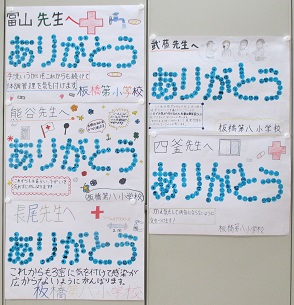 富山先生へ
ありがとう
手洗いうがいをこれからも続けて
体調管理を気を付けます。
板橋第八小学校
熊谷先生へ
ありがとう
板橋第八小学校
長尾先生へ
ありがとう
これからも3密に気を付けて感染が
広がらないようにがんばります。
板橋第八小学校
武原先生へ
ありがとう
板橋第八小学校
四釜先生へ
ありがとう
板橋第八小学校